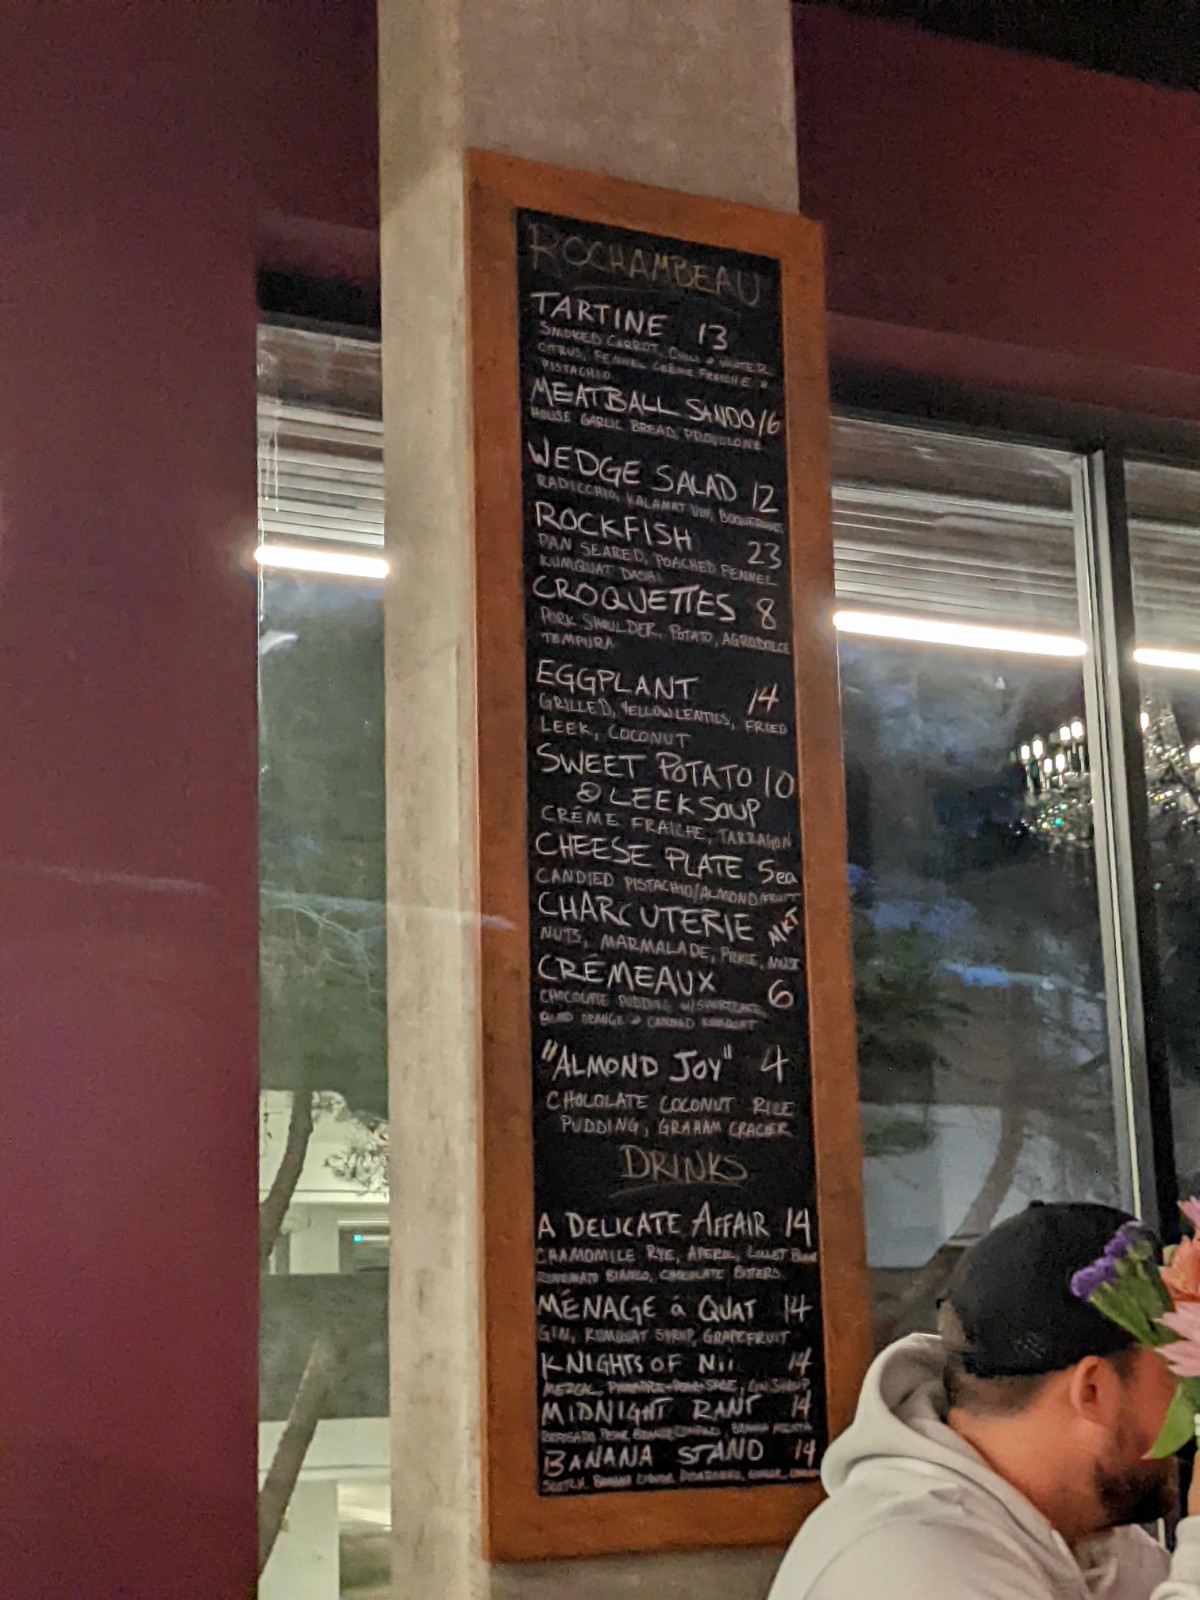 ROCHAMBEAU
TARTINE 13
SMOKED CARROT, CHILI & WATER
CITRUS, FENNEL CRÈME FRAICHE &
PISTACHIO
MEATBALL SANDO 16
HOUSE GARLIC BREAD, PROVOLONE
WEDGE SALAD 12
RADICCHIO, KALAMAT VIN,
ROCKFISH 23
PAN SEARED, POACHED FENNEL
KUMQUAT DASHI
CROQUETTES 8
PORK SHOULDER, POTATO, AGRODOLCE
TEMPURA
EGGPLANT 14
GRILLED, YELLOW LENTILS, FRIED
LEEK, COCONUT
SWEET POTATO 10
& LEEK SOUP
CRÉME FRAICHE, TARRAGON
CHEESE PLATE 5ea
CANDIED PISTACHIO/ALMOND/FRUIT
CHARCUTERIE MKT
NUTS, MARMALADE, PICKLE, MUST
CRÉMEAUX 6
CHOCOLATE PUDDING W/
ORANGE & CANDIED KUMQUAT
"ALMOND JOY" 4
CHOLOLATE COCONUT RICE
PUDDING, GRAHAM CRACKER
DRINKS
A DELICATE AFFAIR 14
CHAMOMILE RYE, APEROL, LILLET BLANC
BIANCO, CHOCOLATE BITTERS
MÉNAGE á QUAT 14
GIN, KUMQUAT SYRUP, GRAPEFRUIT
KNIGHTS OF Nii 14
MEZCAL,
MIDNIGHT RANT 14
BANANA STAND 14
SCOTCH, BANANA